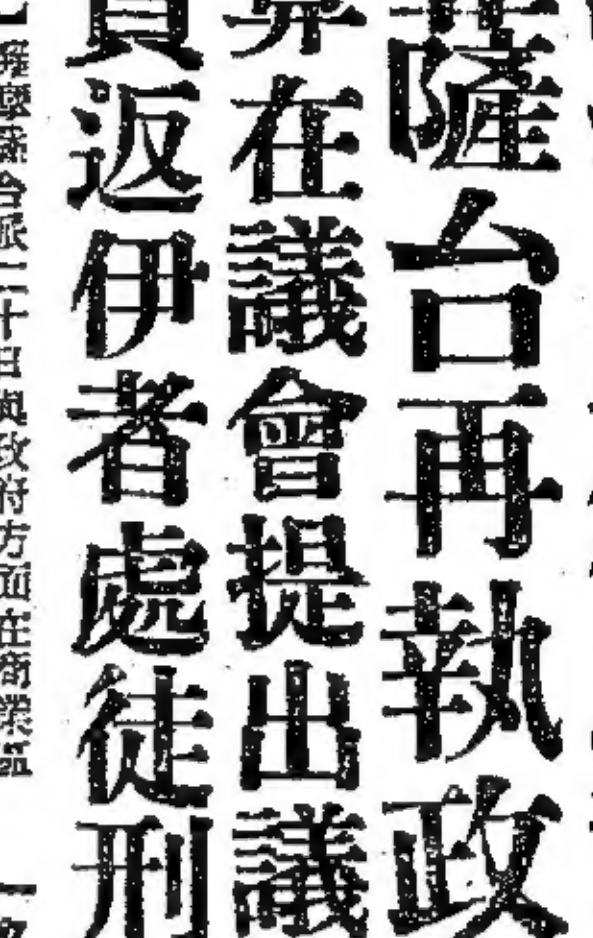 薩台再執政
在議會提出議
返伊者處徒刑
派二十日與政府方面在商業區